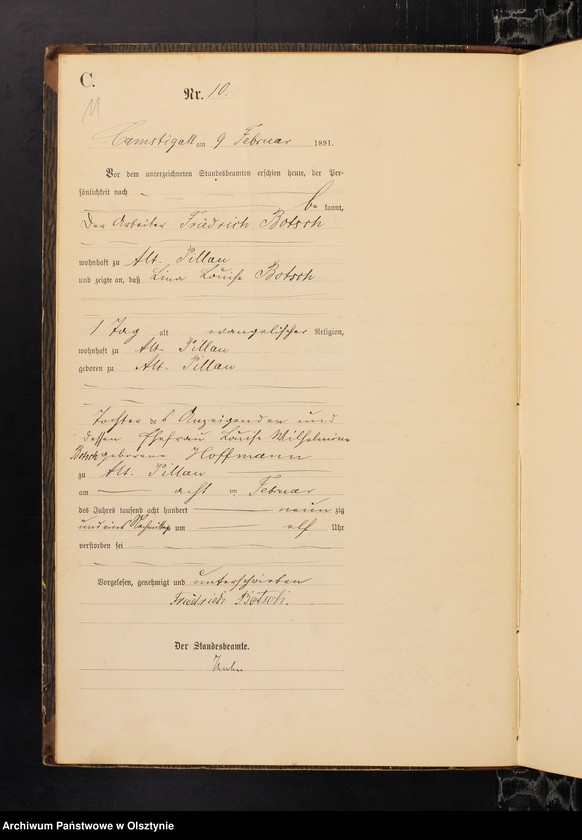 C.
11
Nr. 10.
Camstigall am 9 Februar 1891.
Vor dem unterzeichneten Standesbeamten erschien heute, der Per-
sönlichkeit nach
be kannt,
Der Arbeiter Friedrich Botsch
wohnhaft zu Alt-Pillau
und zeigte an, daß Lina Louise Botsch
1 Tag alt evangelischer Religion,
wohnhaft zu Alt-Pillau
geboren zu Alt-Pillau
Tochter des Anzeigenden und
dessen Ehefrau Louise Wilhelmine
Botsch geborene Hoffmann
zu Alt-Pillau
am acht ten Februar
des Jahres tausend acht hundert neun zig
und eins Nachmittags um elf Uhr
verstorben sei
Vorgelesen, genehmigt und unterschrieben
Friedrich Botsch.
Der Standesbeamte.
Archiwum Państwowe w Olsztynie